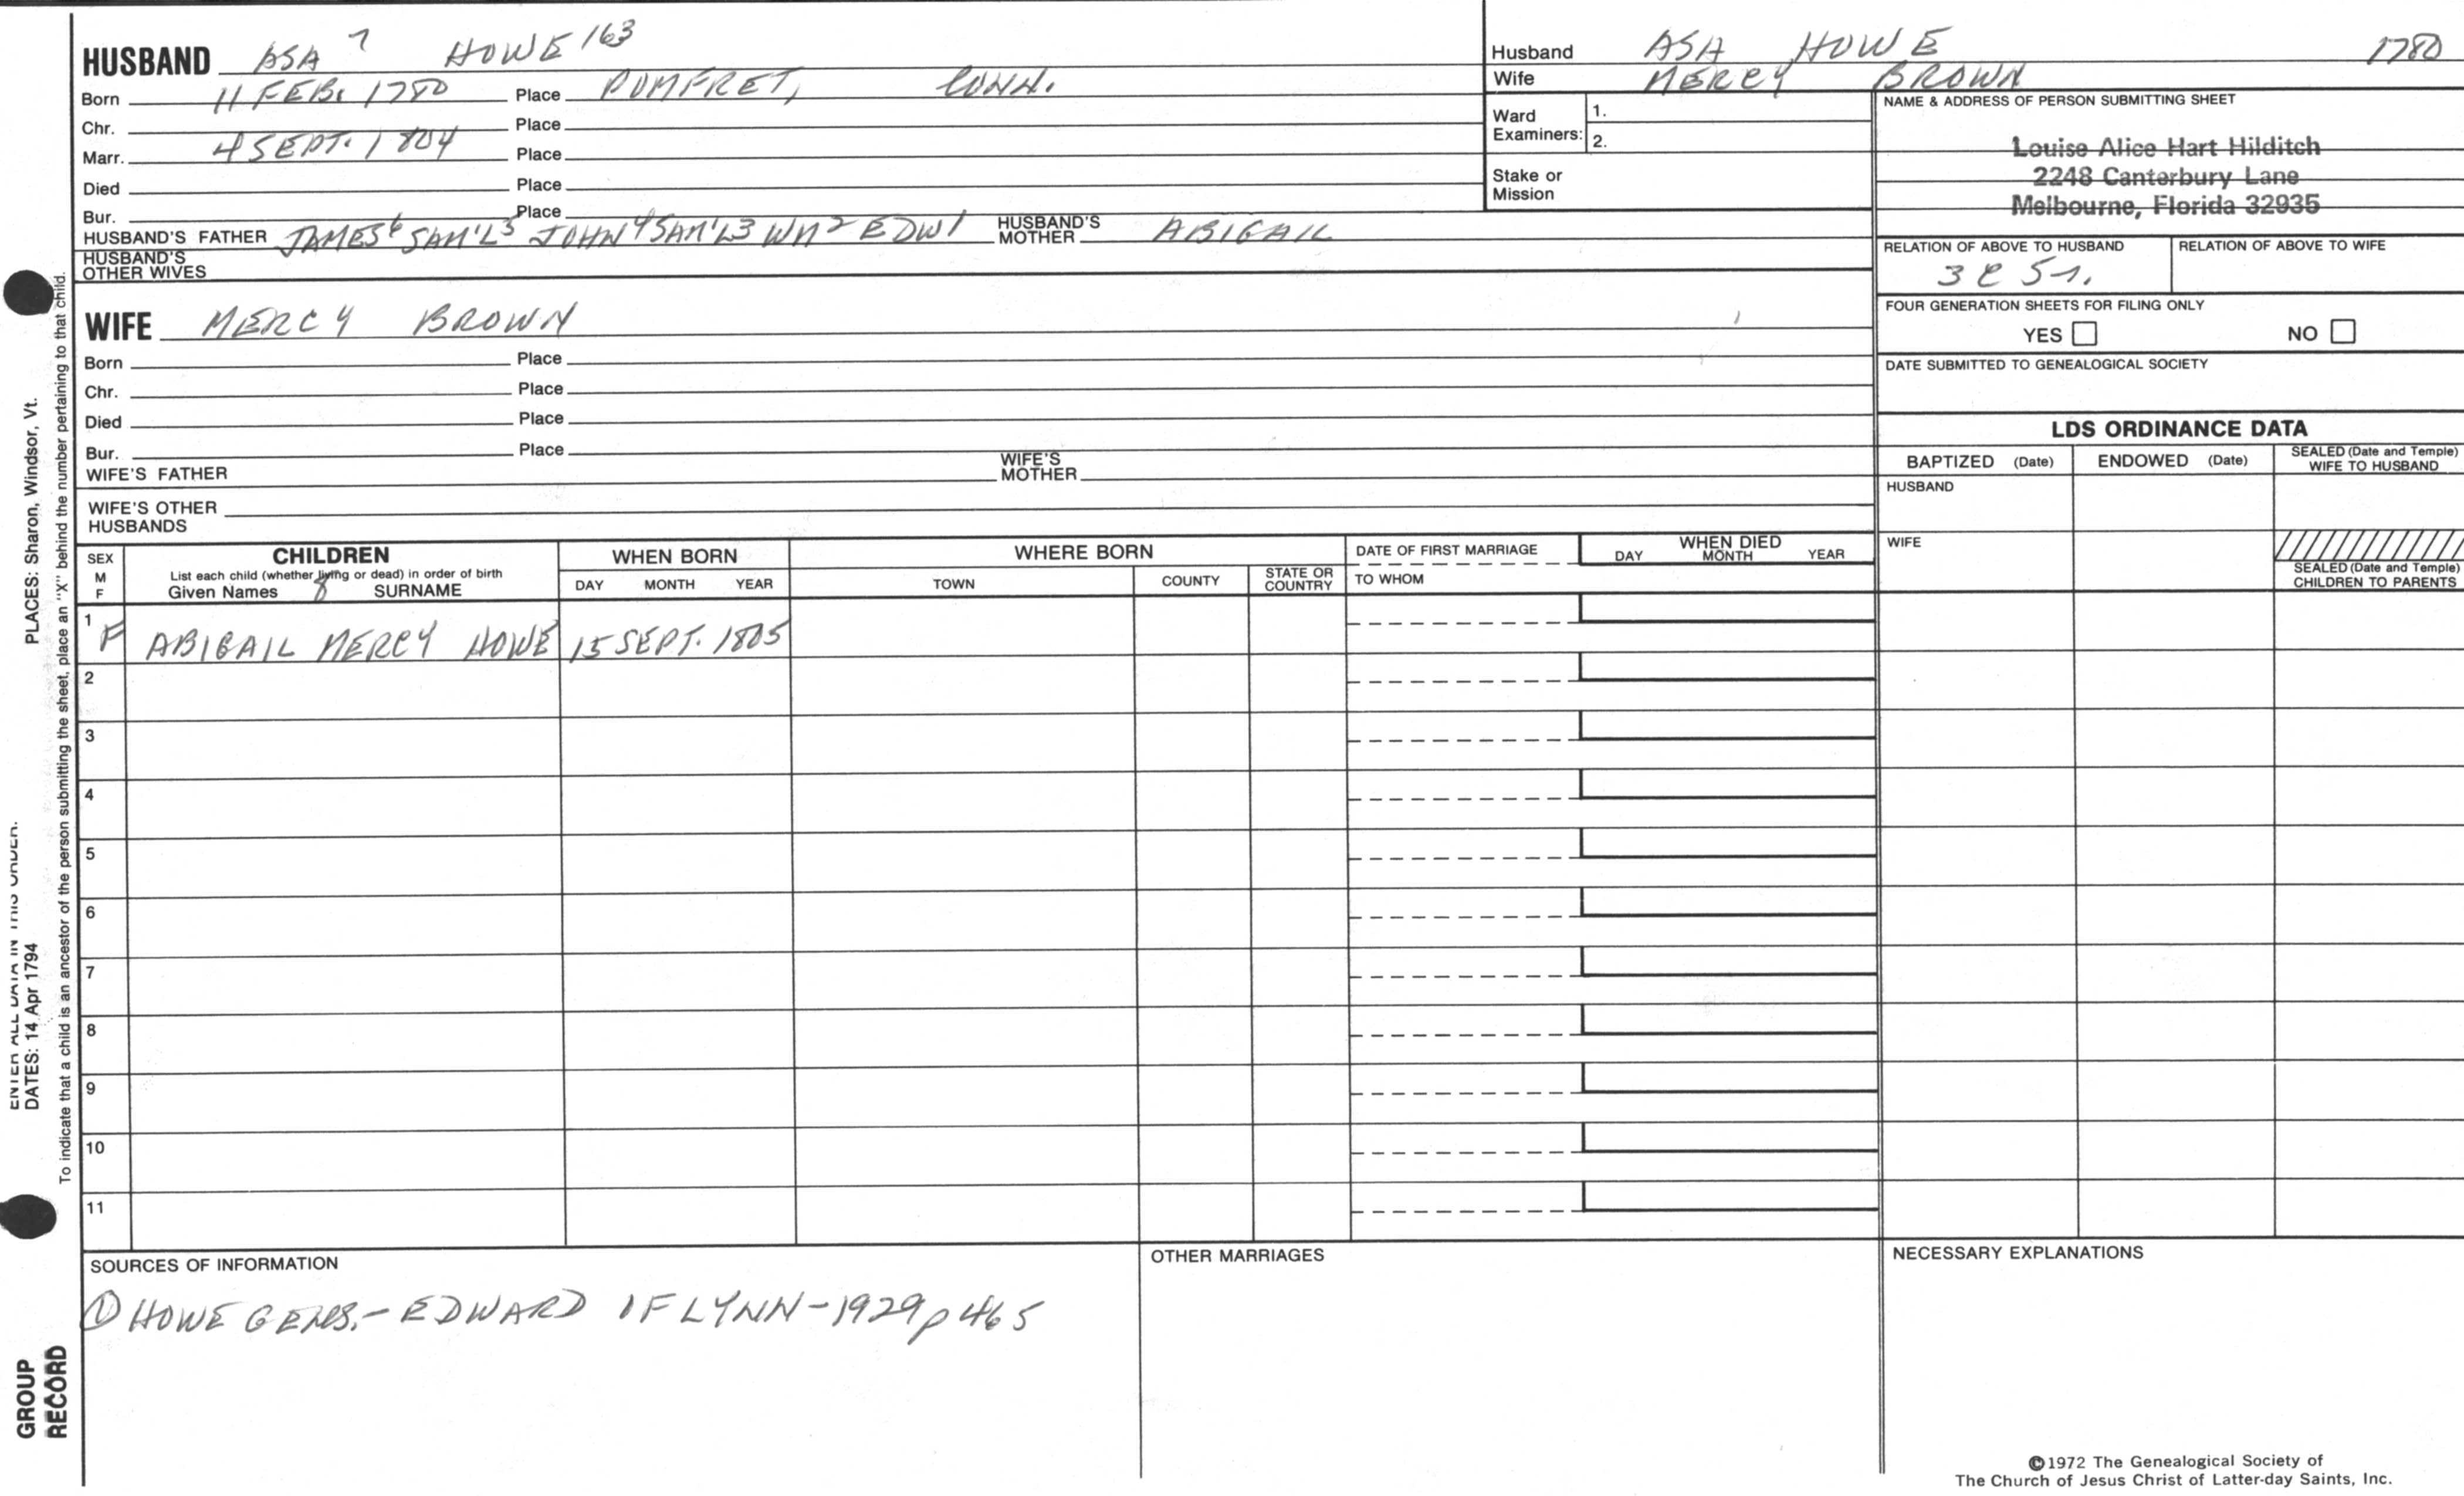 HUSBAND ASA 7 HOWE 163
Born 11 FEB. 1780 Place POMFRET, CONN.
Chr. Place
Marr. 4 SEPT. 1804 Place
Died Place
Bur. Place
HUSBAND'S FATHER JAMES6 SAM'L5 JOHN4 SAM'L3 WM2 EDW1 HUSBAND'S MOTHER ABIGAIL
HUSBAND'S OTHER WIVES
Husband ASA HOWE 1780
Wife MERCY BROWN
Ward Examiners: 1.
2.
Stake or Mission
NAME & ADDRESS OF PERSON SUBMITTING SHEET
Louise Alice Hart Hilditch
2248 Canterbury Lane
Melbourne, Florida 32935
RELATION OF ABOVE TO HUSBAND RELATION OF ABOVE TO WIFE
3 C 5 r.
FOUR GENERATION SHEETS FOR FILING ONLY
YES NO
DATE SUBMITTED TO GENEALOGICAL SOCIETY
WIFE MERCY BROWN
Born Place
Chr. Place
Died Place
Bur. Place
WIFE'S FATHER WIFE'S MOTHER
WIFE'S OTHER HUSBANDS
LDS ORDINANCE DATA
BAPTIZED (Date) ENDOWED (Date) SEALED (Date and Temple) WIFE TO HUSBAND
HUSBAND
WIFE
SEALED (Date and Temple) CHILDREN TO PARENTS
SEX M F
CHILDREN
List each child (whether living or dead) in order of birth
Given Names 8 SURNAME
WHEN BORN
DAY MONTH YEAR
WHERE BORN
TOWN COUNTY STATE OR COUNTRY
DATE OF FIRST MARRIAGE
TO WHOM
WHEN DIED
DAY MONTH YEAR
1 F ABIGAIL MERCY HOWE 15 SEPT. 1805
2
3
4
5
6
7
8
9
10
11
SOURCES OF INFORMATION
① HOWE GENS.- EDWARD OF LYNN-1929 p 465
OTHER MARRIAGES
NECESSARY EXPLANATIONS
©1972 The Genealogical Society of
The Church of Jesus Christ of Latter-day Saints, Inc.
ENTER ALL DATA IN THIS ORDER:
DATES: 14 Apr 1794 PLACES: Sharon, Windsor, Vt.
To indicate that a child is an ancestor of the person submitting the sheet, place an "X" behind the number pertaining to that child.
GROUP
RECORD